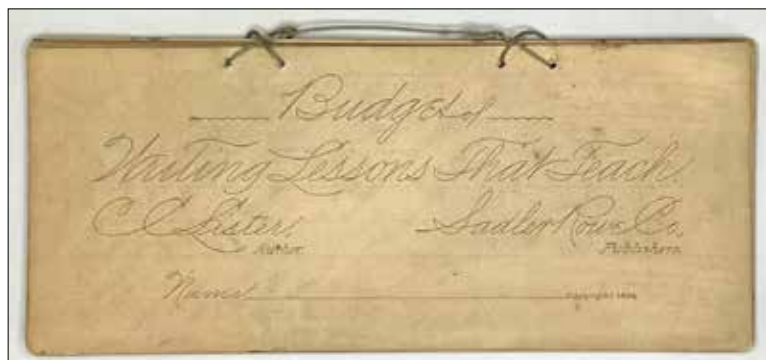 Budget of
Writing Lessons That Teach
C C Lister, Sadler Rowe Co.
Author Publishers
Name Copyright